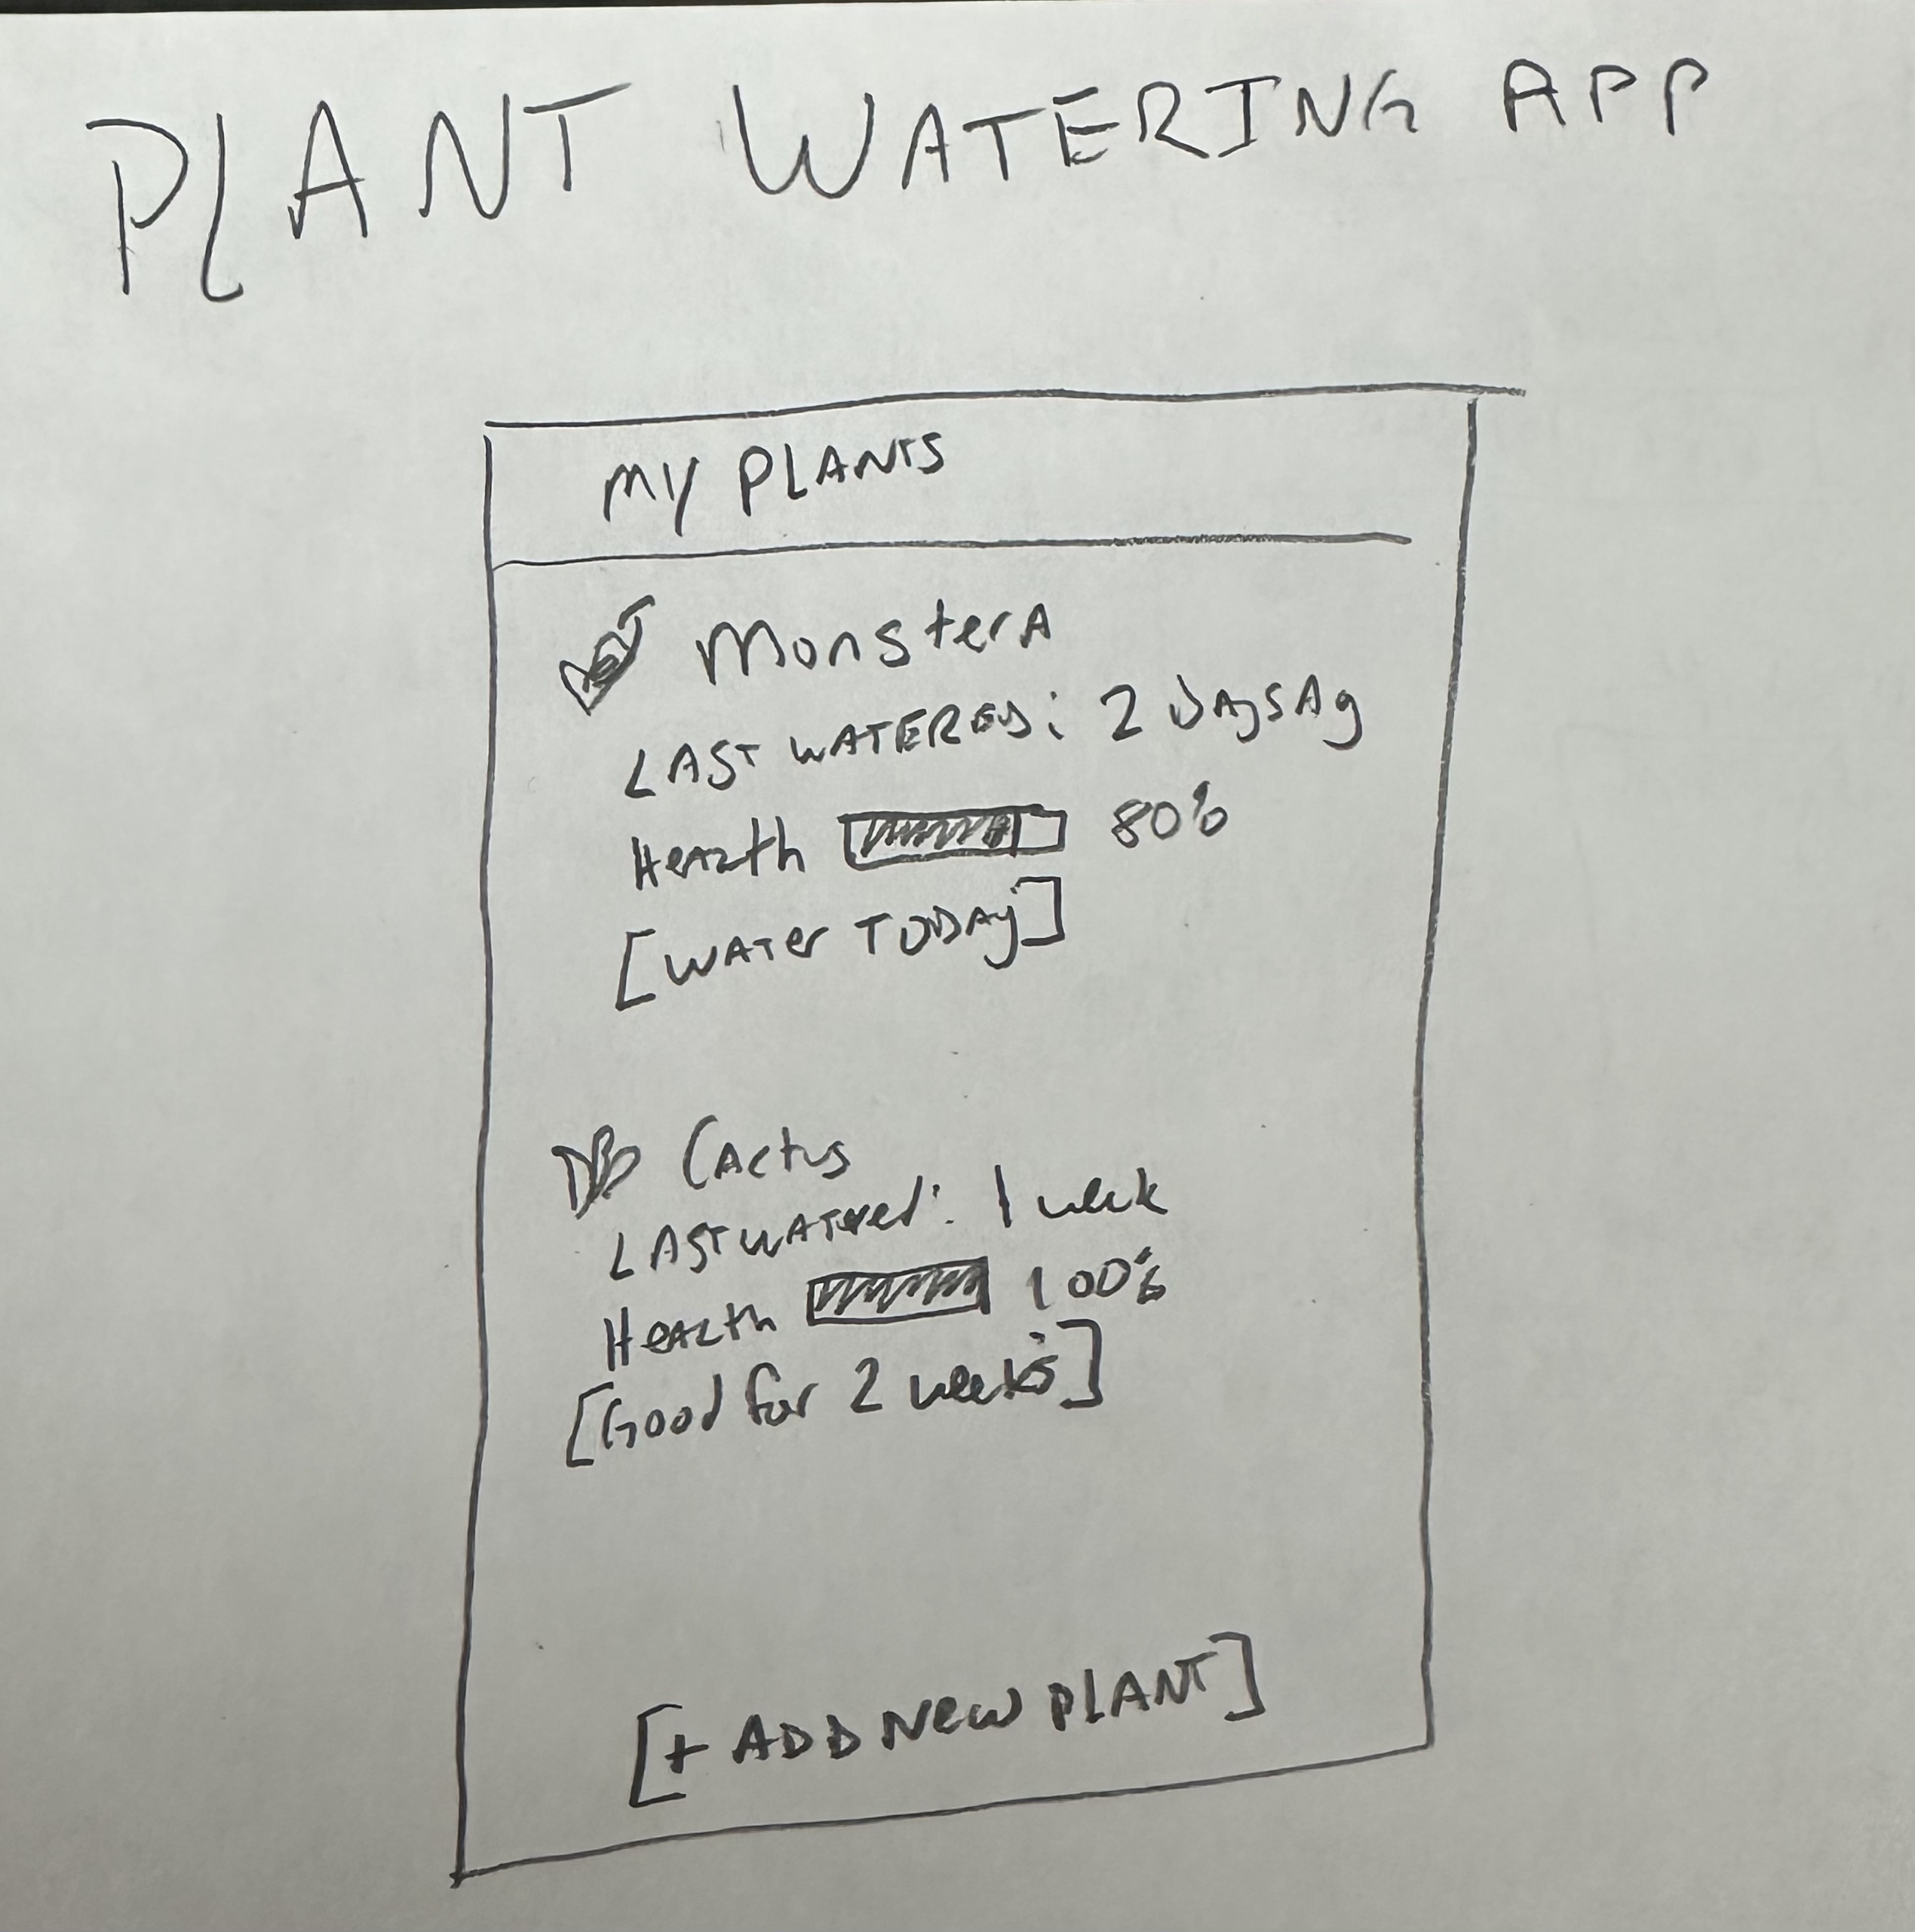 PLANT WATERING APP
MY PLANTS
MonsterA
LAST WATERED: 2 DAysAg
HeALth 80%
[WATer TODAy]
CActus
LAST WATered: 1 week
HeALth 100%
[Good for 2 weeks]
[+ ADD New PLANT]